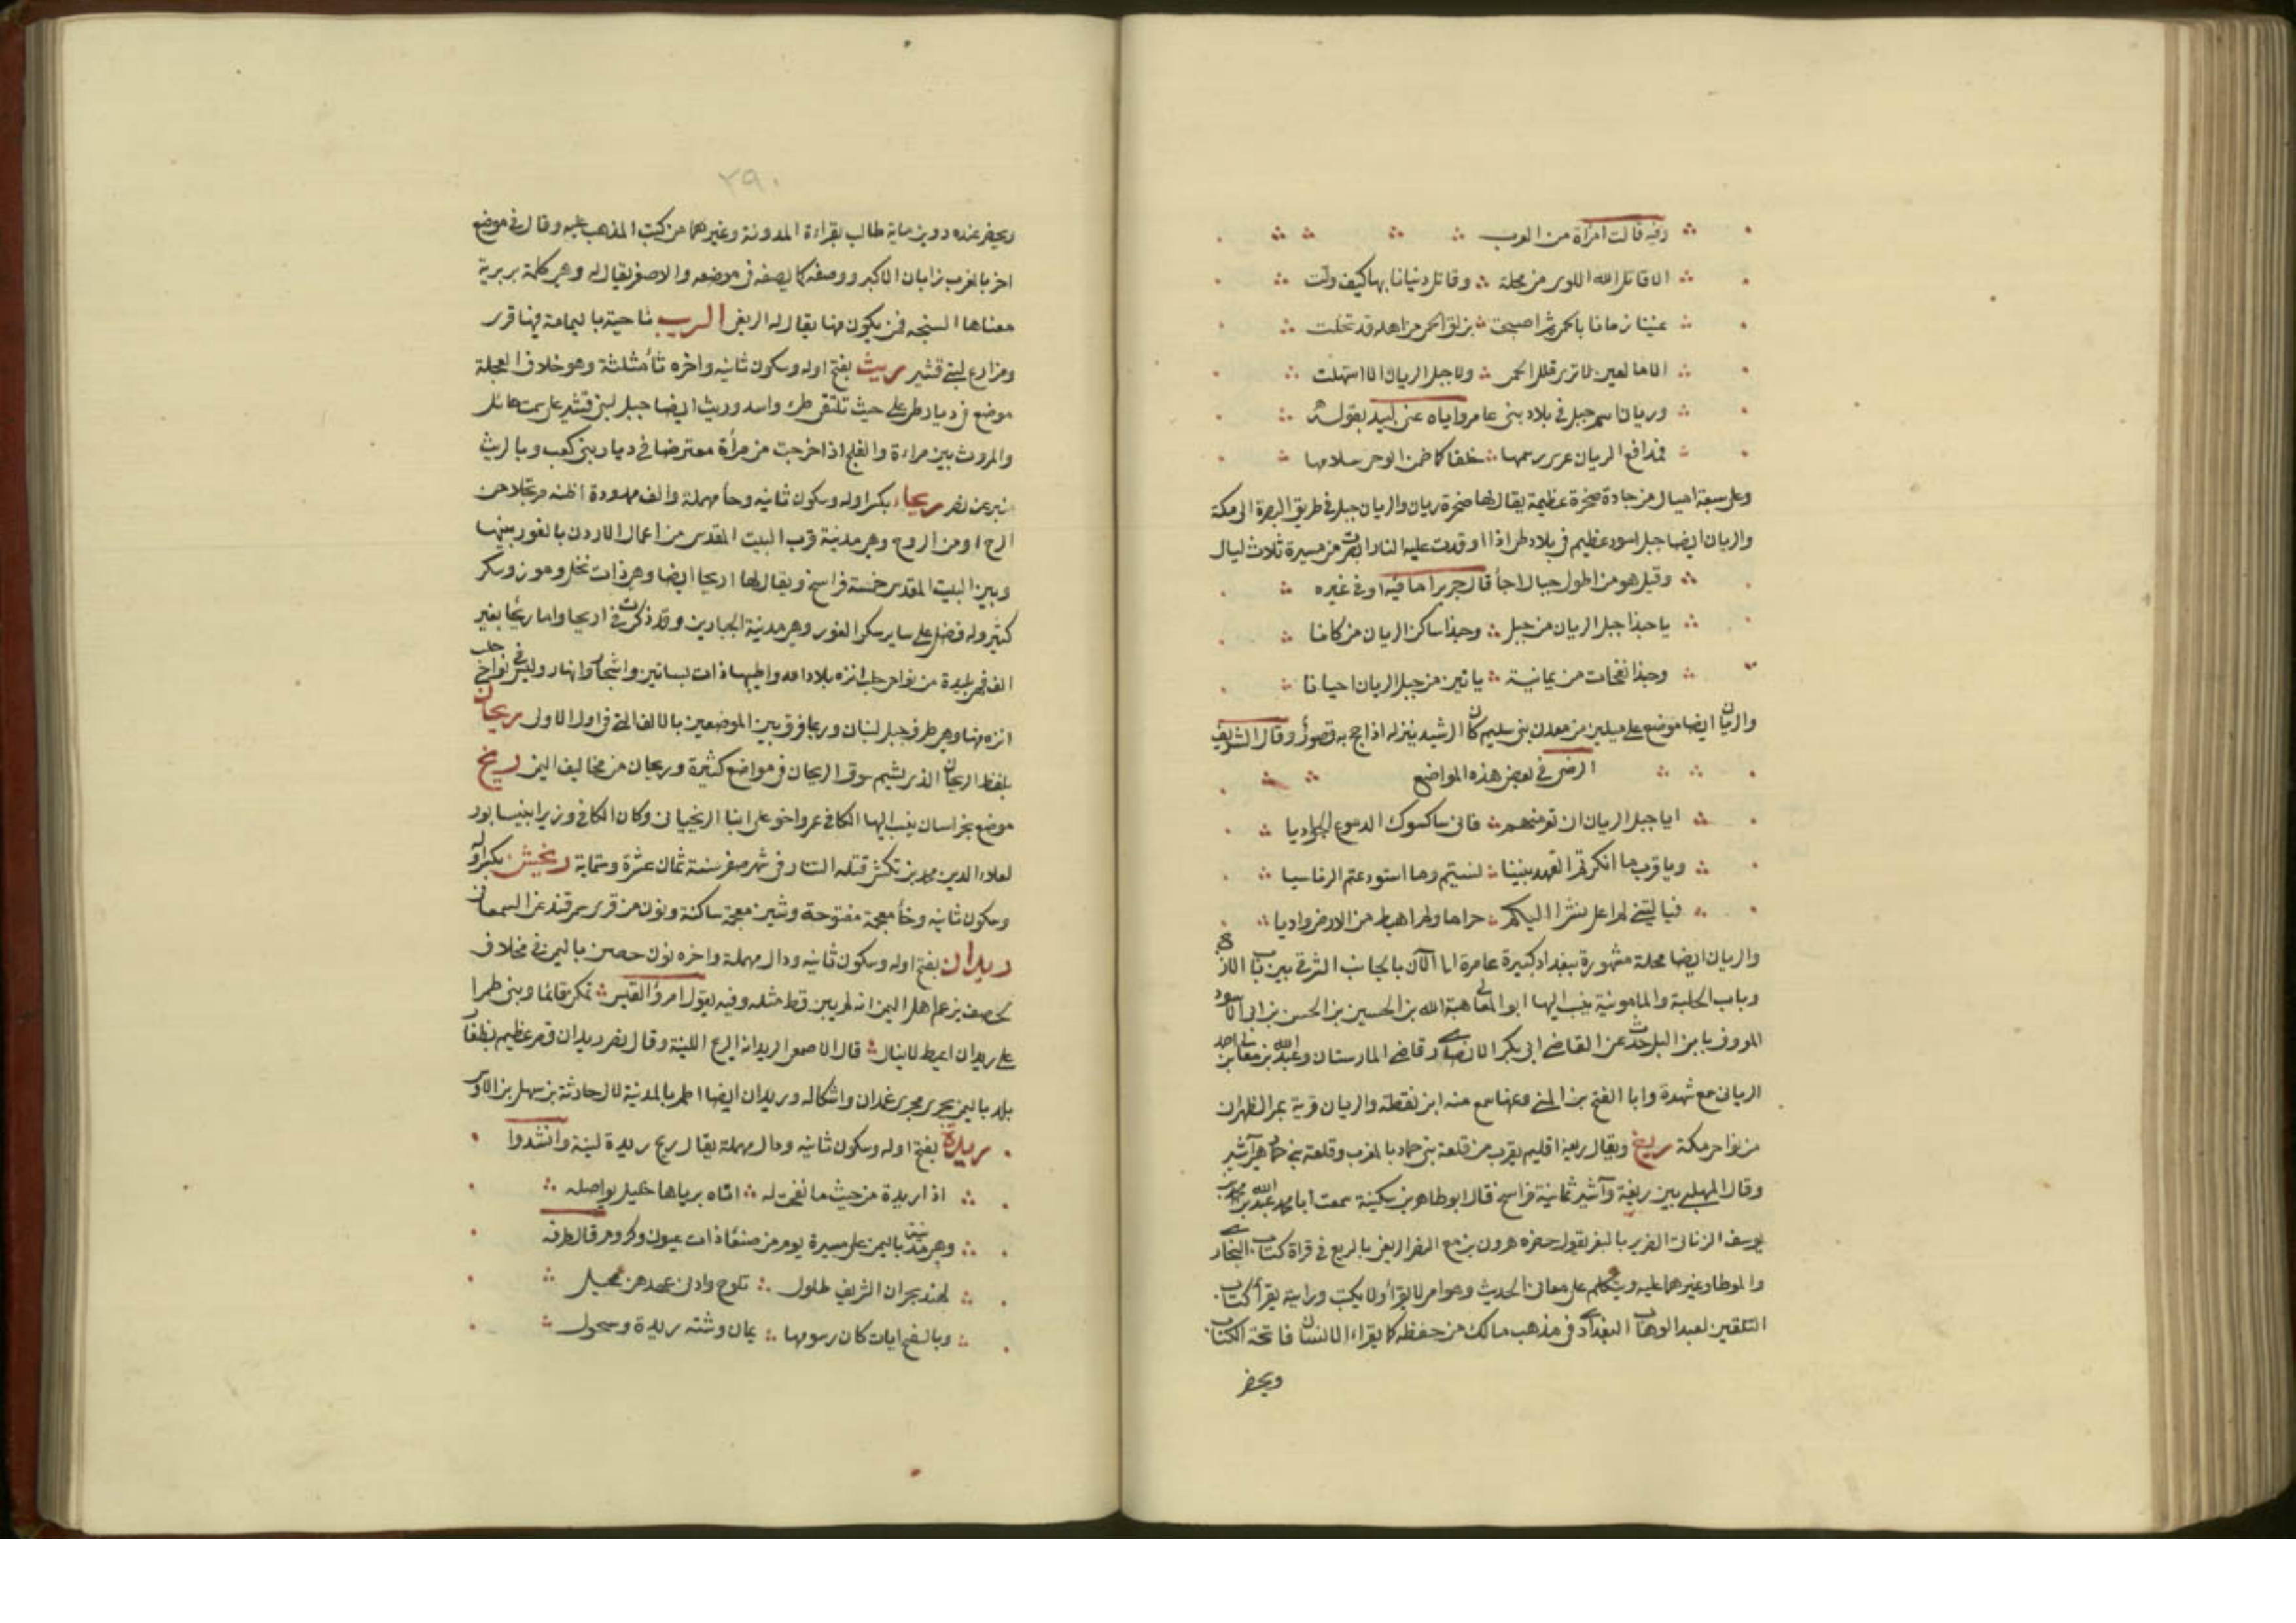 وفيه قالت امرأة من العرب
الا قاتل الله اللوى من محلة وقاتل دنيانا بها كيف ولت
غنينا زمانا بالحمى ثم اصبحت بزلق الحمى من اهله قد تخلت
الا ما لعين لا ترى قلل الحمى ولا جبل الريان الا استهلت
وريان اسم جبل في بلاد بني عامر واياه عنى لبيد بقوله
فمدافع الريان عرى رسمها خلقا كما ضمن الوحى سلامها
وعلى سبعة اميال من جادة صخرة عظيمة يقال لها صخرة ريان والريان جبل في طريق البصرة الى مكة
والريان ايضا جبل اسود عظيم في بلاد طى اذا اوقدت عليه النار ابصرت من مسيرة ثلاث ليال
وقيل هو من اطول جبال اجأ قال جرير اما فيه او في غيره
يا حبذا جبل الريان من جبل وحبذا ساكن الريان من كانا
وحبذا نفحات من يمانية ياتين من جبل الريان احيانا
والريان ايضا موضع على ميلين من معدن بني سليم كان الرشيد ينزله اذا حج به قصور وقال الشريف
الرضى في بعض هذه المواضع
ايا جبل الريان ان تعر منهم فانى ساكسوك الدموع الجواريا
ويا قرب ما انكرتم العهد بيننا نسيتم وما استودعتم الود ناسيا
فيا ليتني لم اعل نشزا اليكم حراما ولم اهبط من الارض واديا
والريان ايضا محلة مشهورة ببغداد كبيرة عامرة الى الآن بالجانب الشرقي بين باب الازج
وباب الحلبة والمامونية ينسب اليها ابو المعالى هبة الله بن الحسين بن الحسن بن ابى الاسود
المعروف بابن البل حدث عن القاضى ابى بكر الانصارى قاضى المارستان وعبد الله بن معالى بن احمد
الريانى سمع شهدة وابا الفتح بن المنى وغيرهما سمع منه ابن نقطة والريان قرية بمر الظهران
من نواحى مكة ريغ ويقال ريغة اقليم بقرب من قلعة بني حماد بالمغرب وقلعة بني حماد هي آشير
وقال المهلبى بين ريغة وآشير ثمانية فراسخ قال ابو طاهر بن سكينة سمعت ابا محمد عبد الله بن محمد بن
يوسف الزناتى الضرير بالثغر يقول حضرت هرون بن النضر الريغى بالريغ في قراة كتاب البخارى
والموطا وغيرهما عليه ويتكلم على معانى الحديث وهو امى لا يقرأ ولا يكتب ورايته يقرأ كتاب
التلقين لعبد الوهاب البغدادى في مذهب مالك من حفظه كما يقراء الانسان فاتحة الكتاب
ويحضر
٢٩٠
ويحضر عنده دوين ماية طالب لقراءة المدونة وغيرهما من كتب المذهب عليه وقال في موضع
اخر بالمغرب زابان الاكبر ووصفه كما نصفه في موضعه والاصغر يقال له وهى كلمة بربرية
معناها السبخة فمن يكون منها يقال له الريغى الريب ناحية باليمامة فيها قرى
ومزارع لبنى قشير ريث بفتح اوله وسكون ثانيه واخره ثاء مثلثة وهو خلاف العجلة
موضع في ديار طى على حيث تلتقى طى واسد وريث ايضا جبل لبنى قشير على سمت حائل
والمروت بين مرأة والفلج اذا خرجت من مرأة معترضا في ديار بني كعب وبالريث
منبر عن نصر ريحاء بكسر اوله وسكون ثانيه وحاء مهملة والف ممدودة اظنه مرتجلا من
الريح او من الروح وهى مدينة قرب البيت المقدس من اعمال الاردن بالغور بينها
وبين البيت المقدس خمسة فراسخ ويقال لها اريحا ايضا وهى ذات نخل وموز وسكر
كثير وله فضل على ساير سكر الغور وهى مدينة الجبارين وقد ذكرت في اريحا واما ريحا بغير
الف فهى بليدة من نواحى حلب انزه بلاد الله واطيبها ذات بساتين واشجار وانهار وليس في نواحى حلب
انزه منها وهى طرف جبل لبنان وربما فرق بين الموضعين بالالف التى في اول الاول ريحان
بلفظ الريحان الذى يشم سوق الريحان في مواضع كثيرة وريحان من مخاليف اليمن ريخ
موضع بخراسان ينسب اليها الكافى عمر واخوه على ابنا الريخيان وكان الكافى وزيرا بنيسابور
لعلاء الدين محمد بن تكش قتله التتار في شهر صفر سنة ثمان عشرة وستماية ريخشن بكسر اوله
وسكون ثانيه وخاء معجمة مفتوحة وشين معجمة ساكنة ونون من قرى سمرقند عن السمعانى
ريدان بفتح اوله وسكون ثانيه ودال مهملة واخره نون حصن باليمن في مخلاف
يحصب يزعم اهل اليمن انه لم يبن قط مثله وفيه يقول امرؤ القيس تمكن قائما وبنى طمرا
على ريدان اعيط لا ينال قال الاصمعى الريدانة الريح اللينة وقال نصر ريدان قصر عظيم بظفار
بلد باليمن يجرى مجرى غمدان واشكاله وريدان ايضا اطم بالمدينة لال حارثة بن سهل بن الاوس
ريدة بفتح اوله وسكون ثانيه ودال مهملة يقال ريح ريدة لينة وانشدوا
اذا ريدة من حيث ما نفحت له اتاه برياها خليل يواصله
وهى مدينة باليمن على مسيرة يوم من صنعاء ذات عيون وكروم قال طرفة
لهند بحران الشريف طلول تلوح وادنى عهدهن محيل
وبالسفح ايات كان رسومها يمان وشته ريدة وسحول